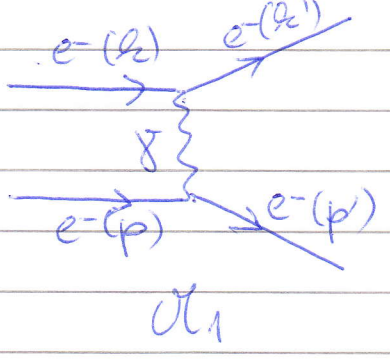 e⁻(k) e⁻(k')
γ
e⁻(p) e⁻(p')
M₁